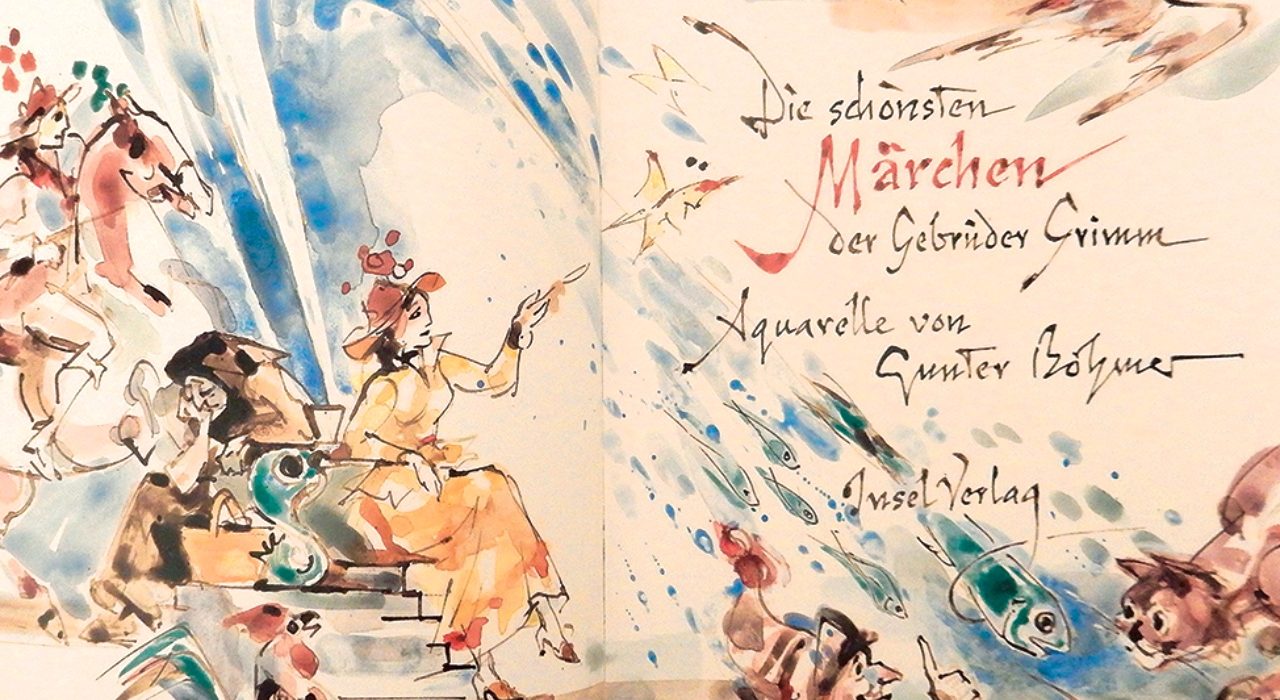 Die schönsten
Märchen
der Gebrüder Grimm
Aquarelle von
Gunter Böhmer
Insel Verlag